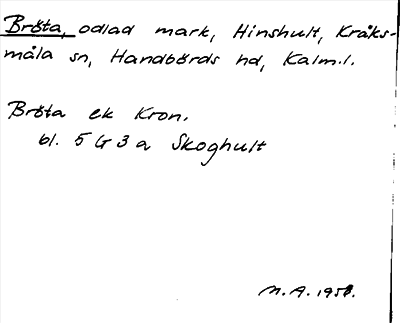 Bröta, odlad mark, Hinshult, Kråks-
måla sn, Handbörds hd, Kalm.l.
Bröta ek Kron.
bl. 5 G 3 a Skoghult
M.A. 1958.